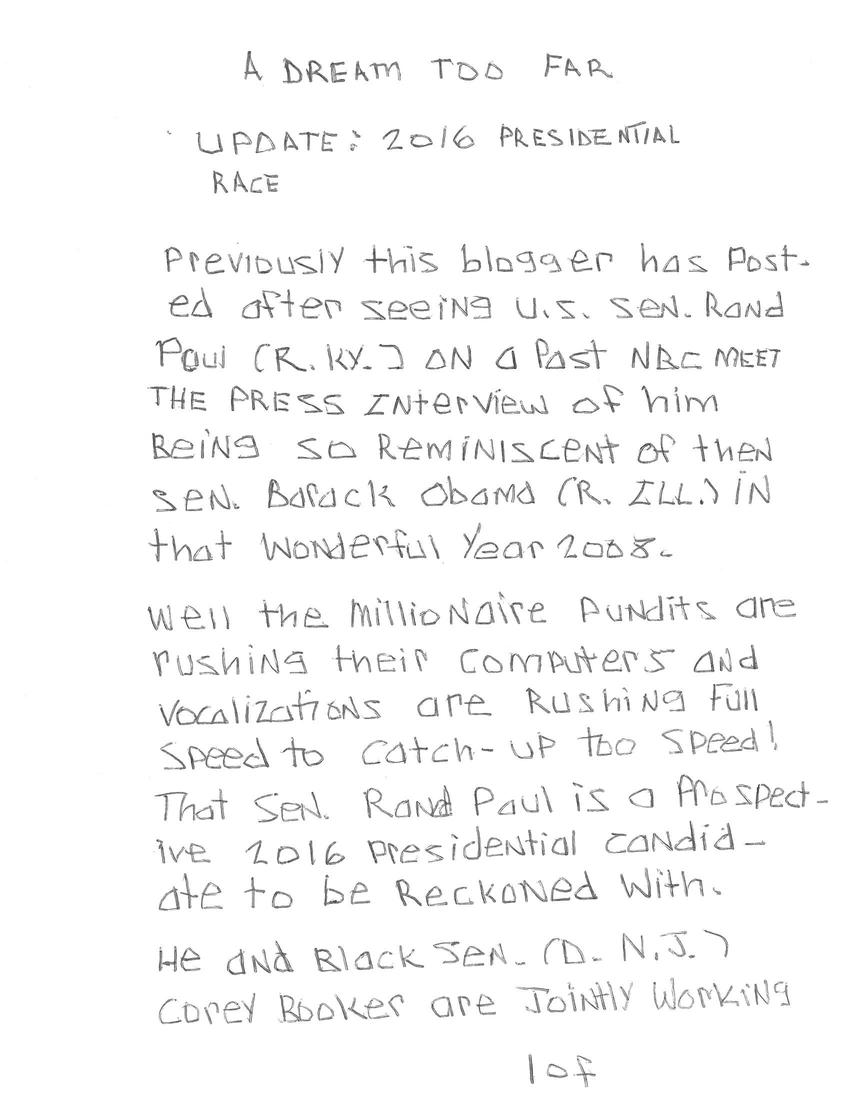 A DREAM TOO FAR
UPDATE: 2016 PRESIDENTIAL
RACE
Previously this blogger has Post-
ed after seeing U.S. Sen. Rand
Paul (R. KY.) ON a Past NBC MEET
THE PRESS Interview of him
Being so Reminiscent of then
Sen. Barack Obama (R. ILL.) in
that Wonderful Year 2008.
Well the Millionaire Pundits are
rushing their Computers and
Vocalizations are Rushing Full
Speed to Catch-up too Speed!
That Sen. Rand Paul is a Prospect-
ive 2016 Presidential Candid-
ate to be Reckoned With.
He and Black Sen. (D. N.J.)
Corey Booker are Jointly Working
1 of